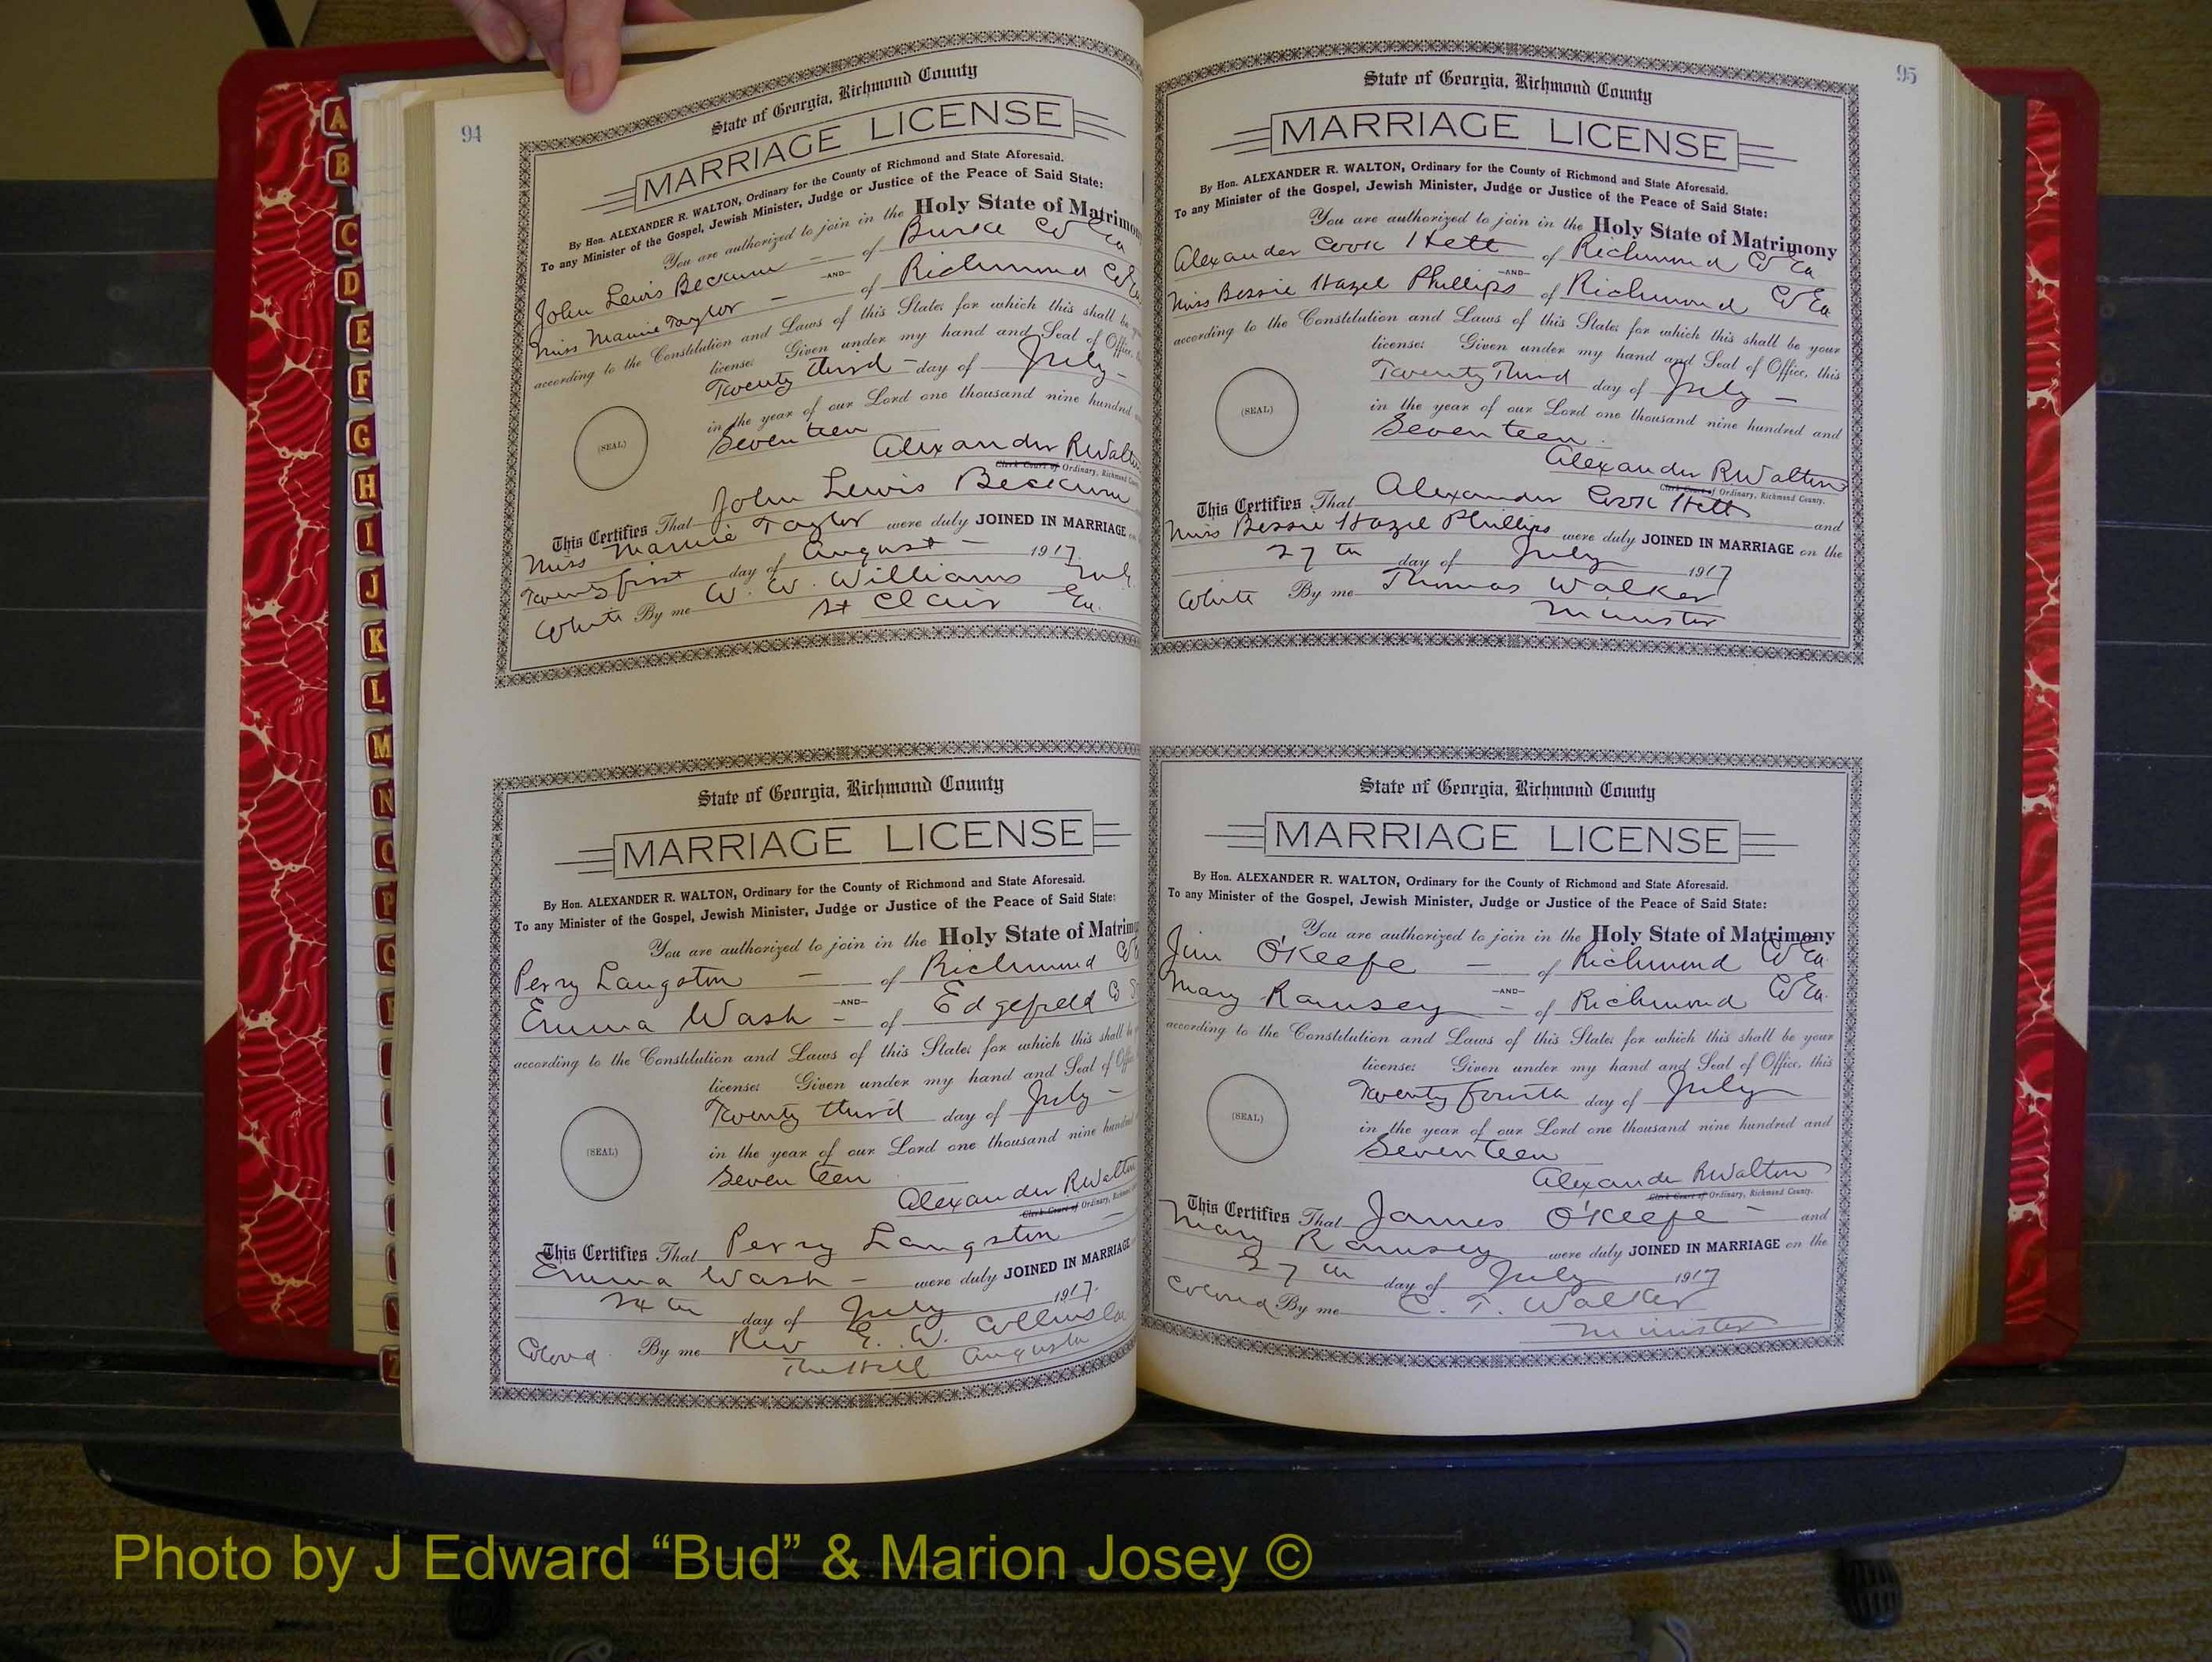 94
State of Georgia, Richmond County
MARRIAGE LICENSE
By Hon. ALEXANDER R. WALTON, Ordinary for the County of Richmond and State Aforesaid.
To any Minister of the Gospel, Jewish Minister, Judge or Justice of the Peace of Said State:
You are authorized to join in the Holy State of Matrimony
John Lewis Beckum - of Burke Co Ga
-AND-
Miss Mamie Taylor - of Richmond Co Ga
according to the Constitution and Laws of this State; for which this shall be
license: Given under my hand and Seal of Office,
Twenty third - day of July -
in the year of our Lord one thousand nine hundred
Seventeen
Alexander R Walton
Clerk Court of Ordinary, Richmond County
This Certifies That John Lewis Beckum
Miss Mamie Taylor were duly JOINED IN MARRIAGE
Twenty first day of August - 1917.
White By me W. W. Williams
St Clair Ga.
State of Georgia, Richmond County
MARRIAGE LICENSE
By Hon. ALEXANDER R. WALTON, Ordinary for the County of Richmond and State Aforesaid.
To any Minister of the Gospel, Jewish Minister, Judge or Justice of the Peace of Said State:
You are authorized to join in the Holy State of Matrimony
Perry Langston - of Richmond Co
-AND-
Emma Wash - of Edgefield Co S
according to the Constitution and Laws of this State; for which this shall be
license: Given under my hand and Seal of Office
Twenty third day of July -
(SEAL)
in the year of our Lord one thousand nine hundred
Seventeen
Alexander R Walton
Clerk Court of Ordinary, Richmond
This Certifies That Perry Langston -
Emma Wash - were duly JOINED IN MARRIAGE
24th day of July 1917.
Colored By me Rev E. W. Collins
The Hill Augusta
95
State of Georgia, Richmond County
MARRIAGE LICENSE
By Hon. ALEXANDER R. WALTON, Ordinary for the County of Richmond and State Aforesaid.
To any Minister of the Gospel, Jewish Minister, Judge or Justice of the Peace of Said State:
You are authorized to join in the Holy State of Matrimony
Alexander Cook Hett of Richmond Co Ga
-AND-
Miss Bessie Hazel Phillips of Richmond Co Ga
according to the Constitution and Laws of this State; for which this shall be your
license: Given under my hand and Seal of Office, this
Twenty Third day of July -
(SEAL)
in the year of our Lord one thousand nine hundred and
Seventeen.
Alexander R Walton
Clerk Court of Ordinary, Richmond County.
This Certifies That Alexander Cook Hett and
Miss Bessie Hazel Phillips were duly JOINED IN MARRIAGE on the
27th day of July 1917
White By me Thomas Walker
Minister
State of Georgia, Richmond County
MARRIAGE LICENSE
By Hon. ALEXANDER R. WALTON, Ordinary for the County of Richmond and State Aforesaid.
To any Minister of the Gospel, Jewish Minister, Judge or Justice of the Peace of Said State:
You are authorized to join in the Holy State of Matrimony
Jim O'Keefe - of Richmond Co Ga.
-AND-
Mary Ramsey - of Richmond Co Ga.
according to the Constitution and Laws of this State; for which this shall be your
license: Given under my hand and Seal of Office, this
Twenty fourth day of July
(SEAL)
in the year of our Lord one thousand nine hundred and
Seventeen
Alexander R Walton
Clerk Court of Ordinary, Richmond County.
This Certifies That James O'Keefe - and
Mary Ramsey were duly JOINED IN MARRIAGE on the
27th day of July 1917
Colored By me C. T. Walker
Minister
A
B
C
D
E
F
G
H
I
J
K
L
M
N
O
P
Z
Photo by J Edward “Bud” & Marion Josey ©